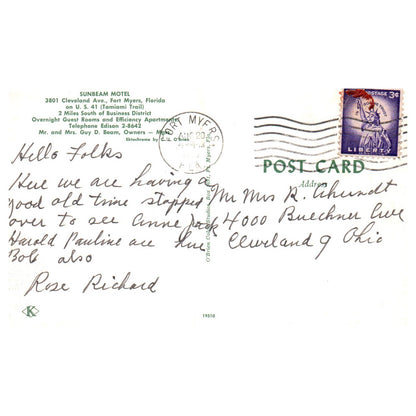 SUNBEAM MOTEL
3801 Cleveland Ave., Fort Myers, Florida
on U. S. 41 (Tamiami Trail)
2 Miles South of Business District
Overnight Guest Rooms and Efficiency Apartments
Telephone Edison 2-8642
Mr. and Mrs. Guy D. Beam, Owners -
Ektachrome by
FORT MYERS
POSTAGE 3¢
LIBERTY
POST CARD
Address
Hello Folks
Here we are having a
good old time stopped
over to see Anne Jack
Harold Pauline are here
Bob also
Rose Richard
Mr Mrs R.
4000 Buechner Ave
Cleveland 9 Ohio
K